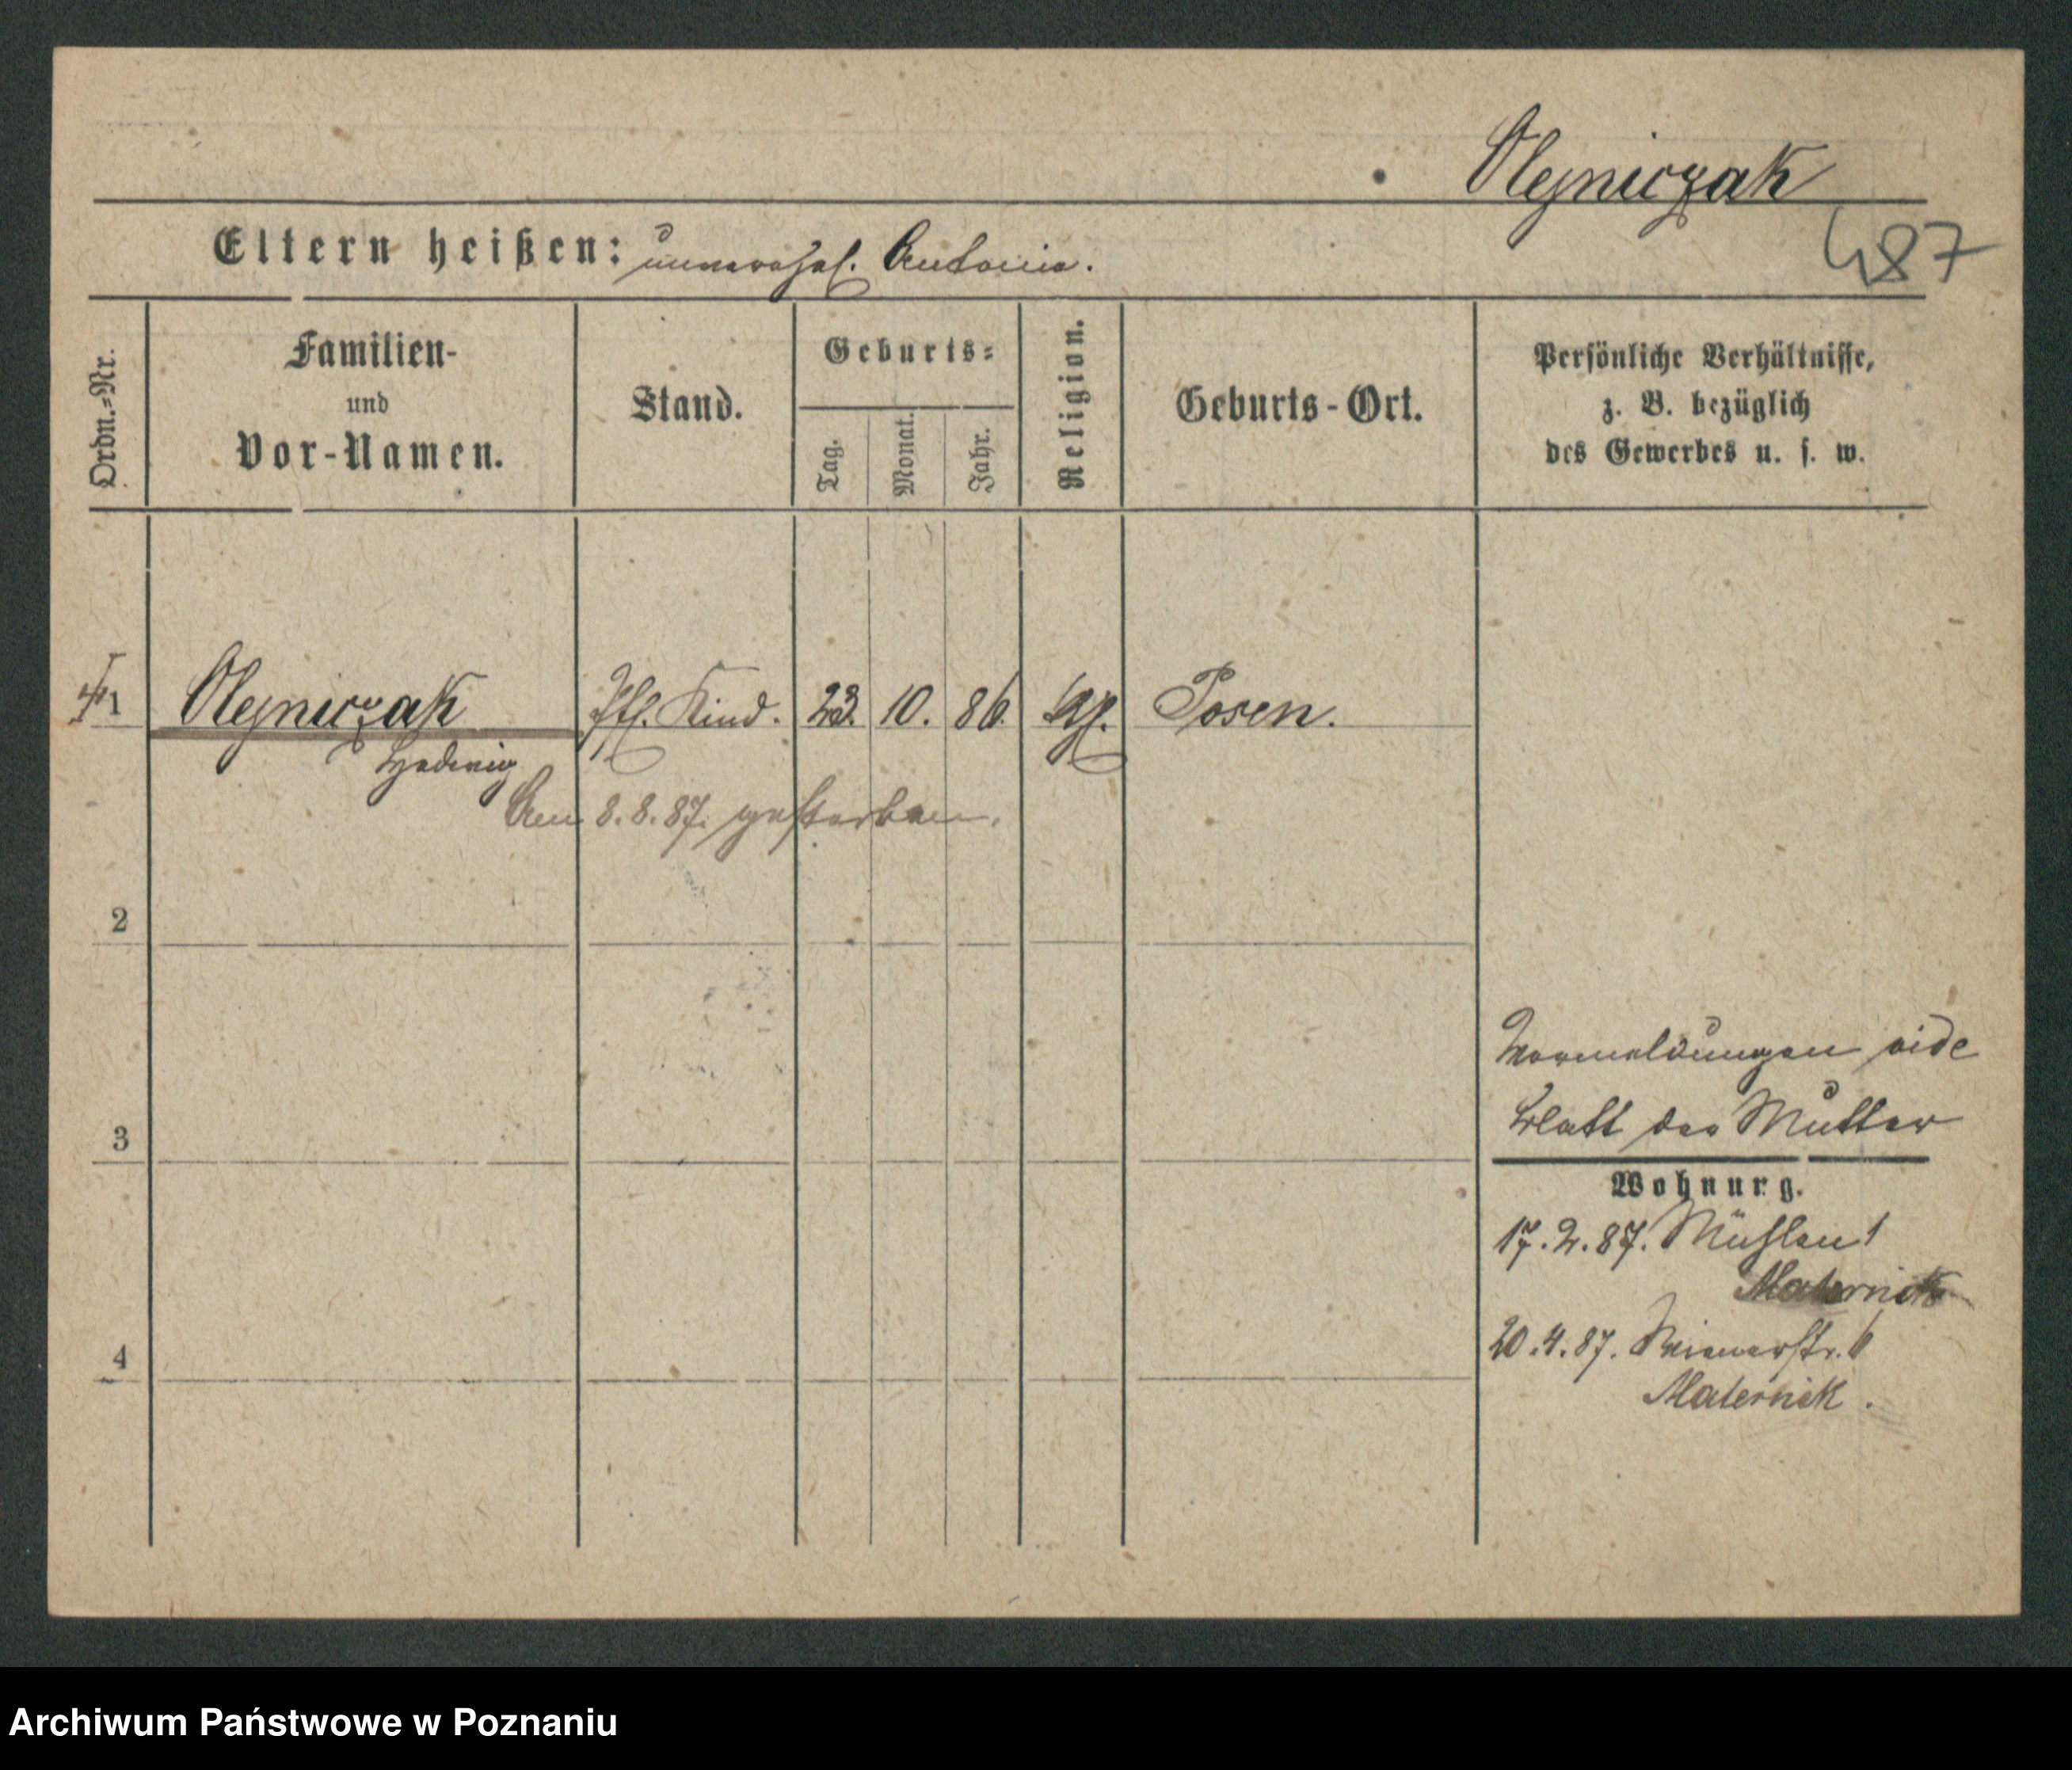 Olejniczak
487
Eltern heißen: unverehel. Antonie.
Ordn.=Nr.
Familien-
und
Vor-Namen.
Stand.
Geburts=
Tag.
Monat.
Jahr.
Religion.
Geburts-Ort.
Persönliche Verhältnisse,
z. B. bezüglich
des Gewerbes u. s. w.
1 Olejniczak Pfl. Kind. 23. 10. 86. kath. Posen.
Hedwig
Am 8.8.87. gestorben.
2
3
Vormeldungen vide
Blatt der Mutter
Wohnung.
17.2.87. Mühlen 1
Maternick
4
20.4.87. 6
Maternick.
Archiwum Państwowe w Poznaniu